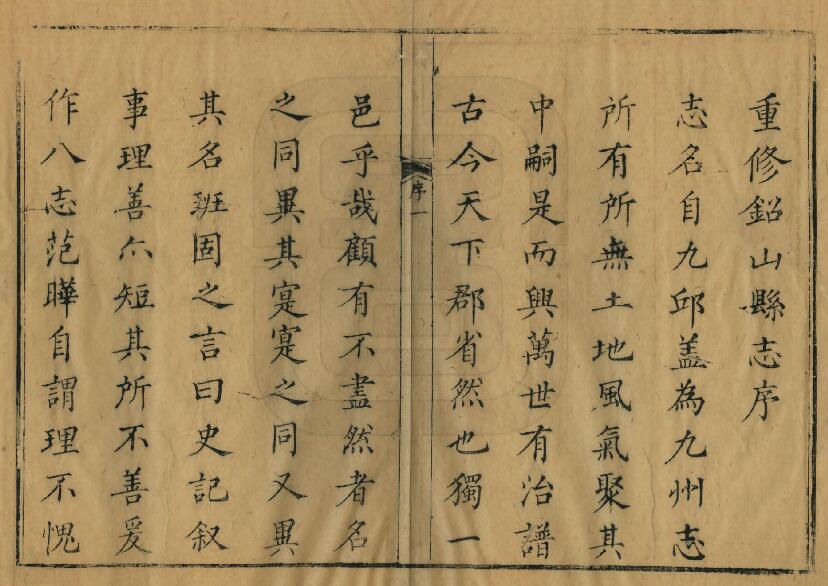 重修鉛山縣志序
志名自九邱盖為九州志
所有所無土地風氣聚其
中嗣是而興萬世有治譜
古今天下郡省然也獨一
序一
邑乎哉顧有不盡然者名
之同異其寔寔之同又異
其名班固之言曰史記叙
事理善亦短其所不善爰
作八志范曄自謂理不愧